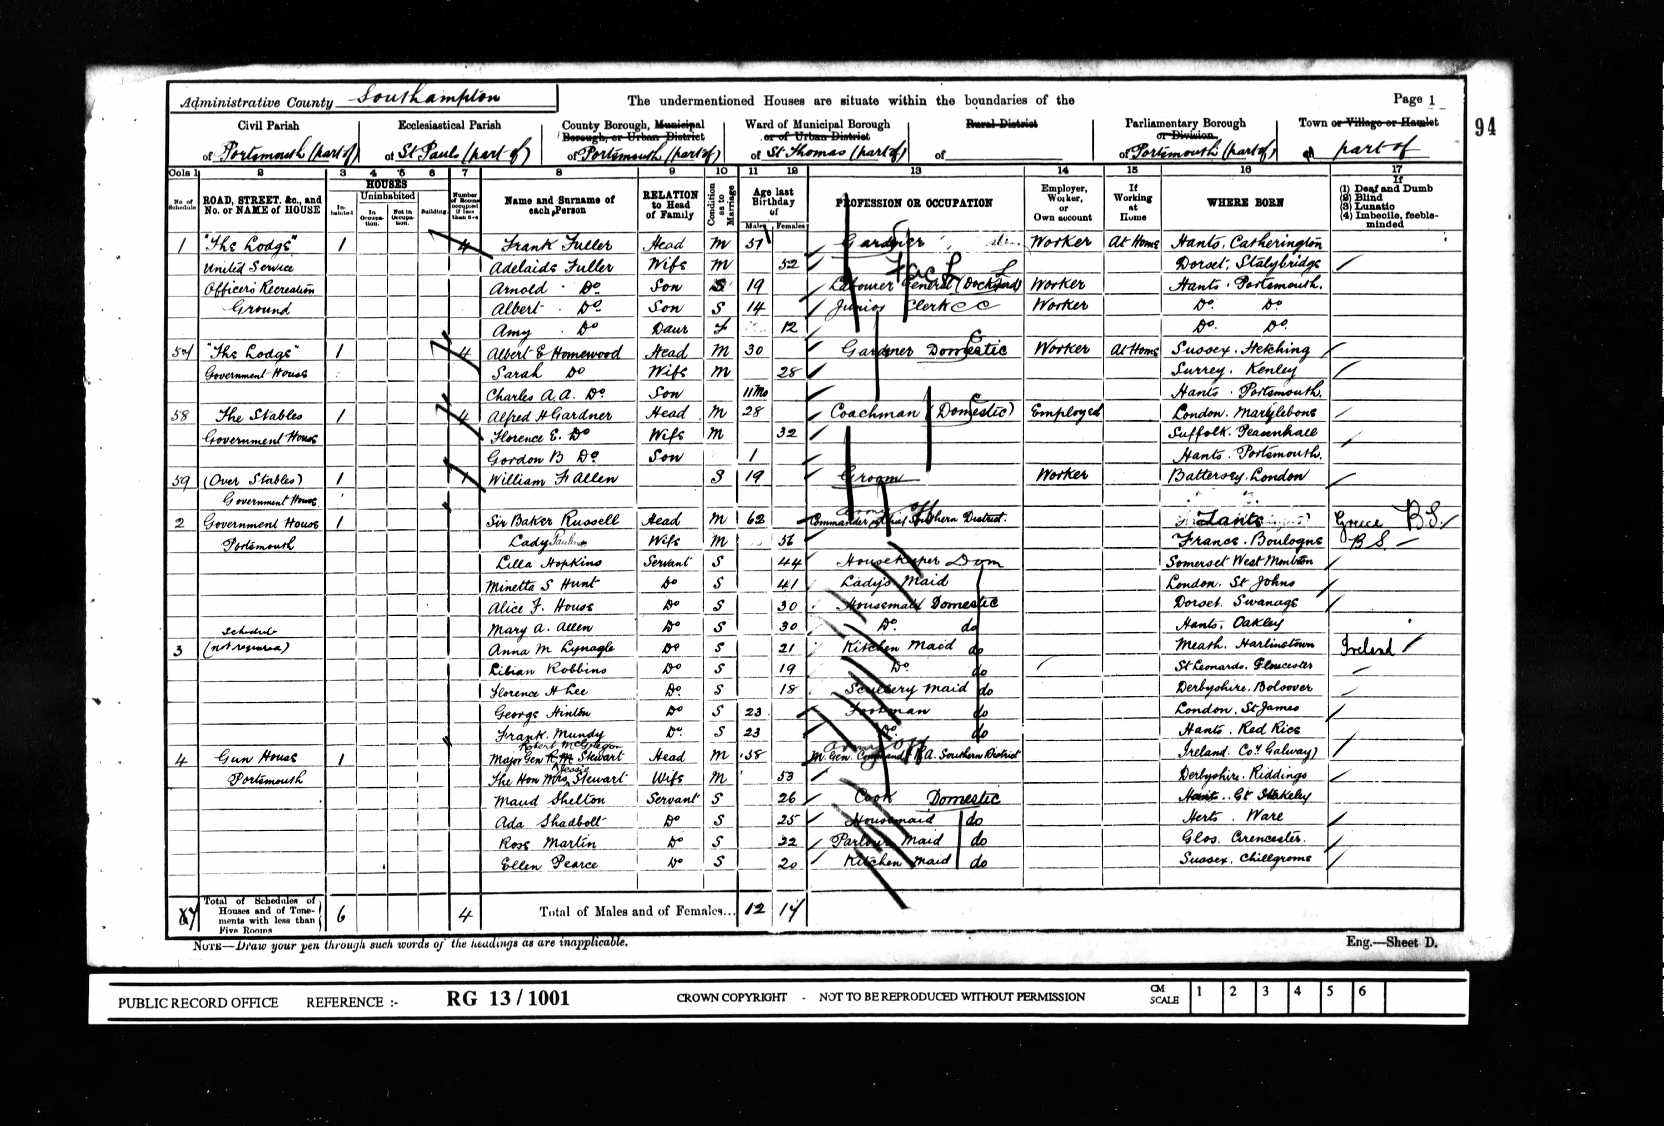 Administrative County Southampton
The undermentioned Houses are situate within the boundaries of the
Page 1
94
Civil Parish
Ecclesiastical Parish
County Borough, Municipal Borough, or Urban District
Ward of Municipal Borough or of Urban District
Rural District
Parliamentary Borough or Division
Town or Village or Hamlet
of Portsmouth (part of)
of St Pauls (part of)
of Portsmouth (part of)
of St Thomas (part of)
of
of Portsmouth (part of)
part of
Cols 1 2 3 4 5 6 7 8 9 10 11 12 13 14 15 16 17
No. of Schedule
ROAD, STREET, &c., and No. or NAME of HOUSE
HOUSES
Inhabited
Uninhabited
In Occupation.
Not in Occupation.
Building.
Number of Rooms occupied if less than five
Name and Surname of each Person
RELATION to Head of Family
Condition as to Marriage
Age last Birthday of
Males
Females
PROFESSION OR OCCUPATION
Employer, Worker, or Own account
If Working at Home
WHERE BORN
If
(1) Deaf and Dumb
(2) Blind
(3) Lunatic
(4) Imbecile, feeble-minded
1 "The Lodge" 1 4 Frank Fuller Head M 51 Gardner Worker At Home Hants, Catherington
United Service Adelaide Fuller Wife M 52 Dorset, Stalybridge
Officers Recreation Arnold Do Son S 19 Labourer General (Dockyard) Worker Hants. Portsmouth.
Ground Albert Do Son S 14 Junior Clerk C C Worker Do. Do.
Amy Do Daur 12 Do. Do.
57 "The Lodge" 1 4 Albert E Homewood Head M 30 Gardner Domestic Worker At Home Sussex. Fletching
Government House Sarah Do Wife M 28 Surrey. Kenley
Charles A. A. Do. Son 11 Mo Hants. Portsmouth.
58 The Stables 1 4 Alfred H Gardner Head M 28 Coachman (Domestic) Employed London. Marylebone
Government House Florence E. Do Wife M 32 Suffolk. Peasenhall
Gordon B Do. Son 1 Hants. Portsmouth.
59 (Over Stables) 1 William F Allen S 19 Groom Worker Battersey. London
Government House
2 Government House 1 Sir Baker Russell Head M 62 Commander Southern District. Army
Portsmouth Lady Wife M 56 France. Boulogne B S.
Lilla Hopkins Servant S 44 Housekeeper Dom Somerset West
Minetta S Hunt Do S 41 Lady's Maid London. St Johns
Alice F. House Do S 30 Housemaid Domestic Dorset. Swanage
Schedule Mary A. Allen Do S 30 Do. do Hants. Oakley
3 (not required) Anna M Lynagle Do S 21 Kitchen Maid do Meath. Harlinstown Ireland
Lilian Robbins Do S 19 Do. do St Leonards. Gloucester
Florence H Lee Do. S 18 Scullery Maid do Derbyshire. Bolsover
George Hinton Do S 23 Footman do London. St James
Frank Mundy Do S 23 Do. do Hants. Red Rice
Robert McGregor
4 Gun House 1 Major Gen R. M Stewart Head M 58 M Gen. Command R. A. Southern District Ireland. Coy Galway)
Portsmouth The Hon Mrs Stewart Wife M 53 Derbyshire. Riddings
Maud Shelton Servant S 26 Cook Domestic
Ada Shadbolt Do S 25 Housemaid do Herts. Ware
Rose Martin Do S 22 Parlour Maid do Glos. Cirencester.
Ellen Pearce Do S 20 Kitchen Maid do Sussex. Chillgrome
Total of Schedules of Houses and of Tenements with less than Five Rooms
6
4
Total of Males and of Females...
12
17
NOTE—Draw your pen through such words of the headings as are inapplicable.
Eng.—Sheet D.
PUBLIC RECORD OFFICE REFERENCE :- RG 13 / 1001 CROWN COPYRIGHT - NOT TO BE REPRODUCED WITHOUT PERMISSION CM SCALE 1 2 3 4 5 6